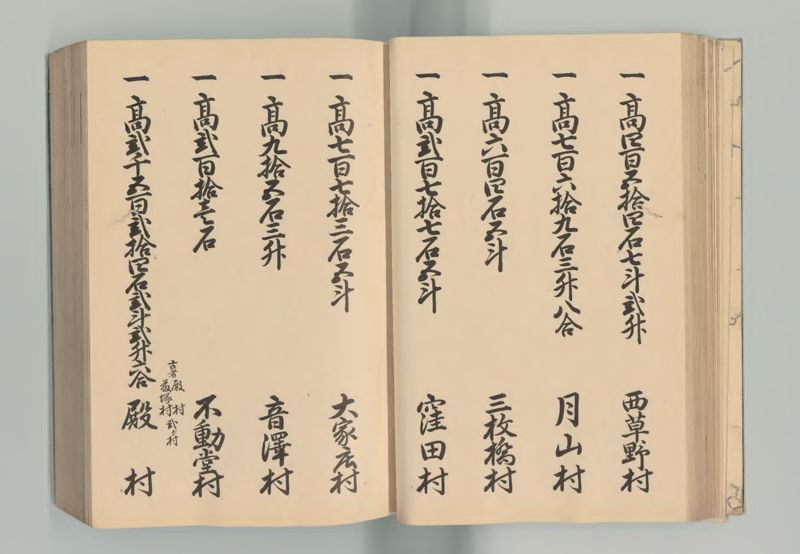 一 高四百五拾四石七斗弐升 西草野村
一 高七百六拾九石三升八合 月山村
一 高六百四石五斗 三枚橋村
一 高弐百七拾七石五斗 窪田村
一 高七百七拾三石五斗 大家庄村
一 高九拾五石三升 音澤村
一 高弐百拾壱石 不動堂村
古者殿村
藪塚村弐ケ村
一 高弐千五百弐拾四石弐斗弐升六合 殿村